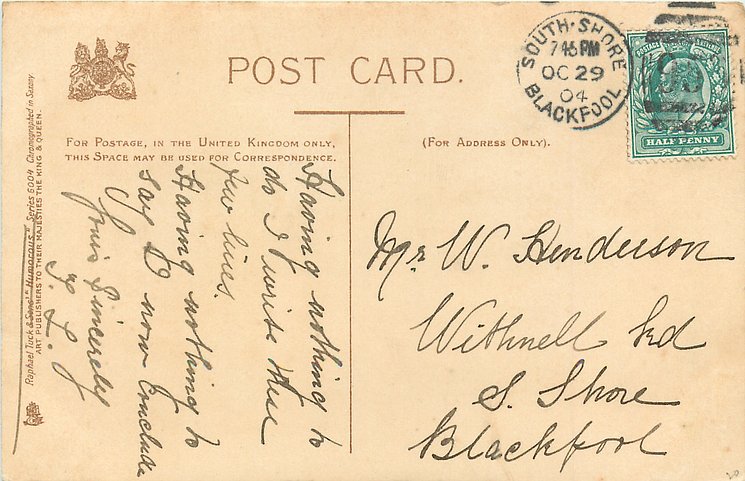 POST CARD.
FOR POSTAGE, IN THE UNITED KINGDOM ONLY,
THIS SPACE MAY BE USED FOR CORRESPONDENCE.
(FOR ADDRESS ONLY).
SOUTH·SHORE
7 45 PM
OC 29
04
BLACKPOOL
POSTAGE
HALF PENNY
Raphael Tuck & Sons' "Humorous" Series 6004 Chromographed in Saxony
ART PUBLISHERS TO THEIR MAJESTIES THE KING & QUEEN.
Having nothing to
do I write these
few lines.
Having nothing to
say I now conclude
Yours Sincerely
Mr W. Henderson
Withnell Rd
S. Shore
Blackpool